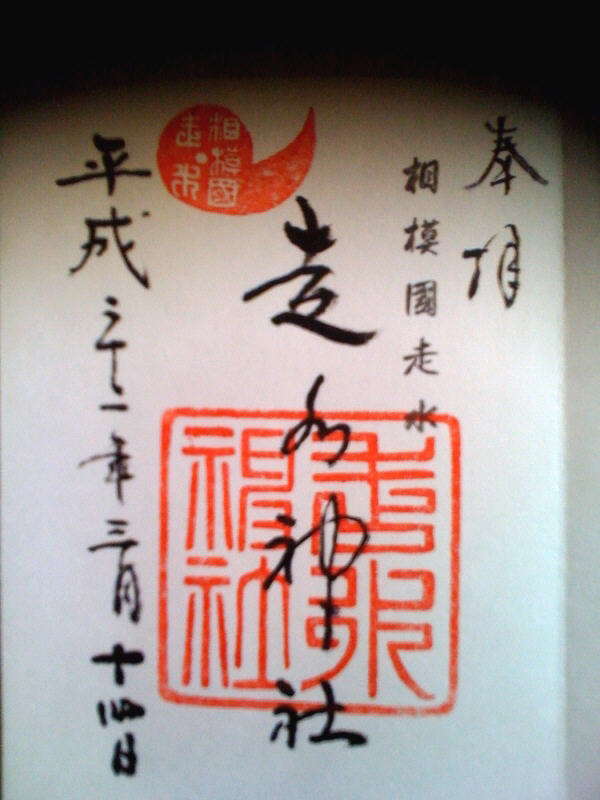 奉拝
相模國走水
相模國
走水
走水神社
走水
神社
平成二十一年三月十四日